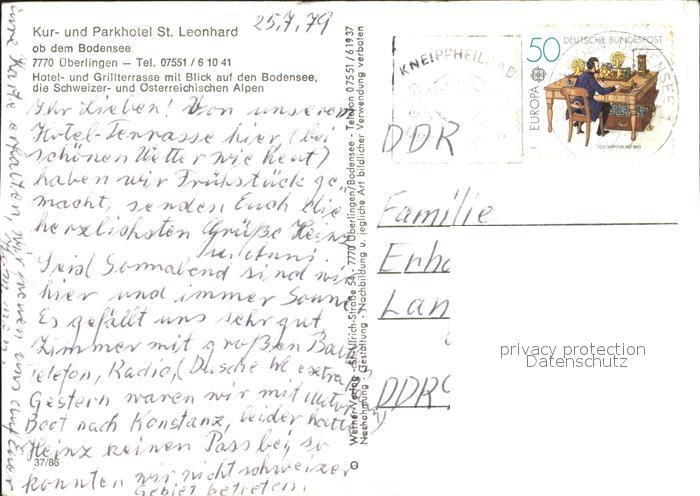 25.7.79
Kur- und Parkhotel St. Leonhard
ob dem Bodensee
7770 Überlingen – Tel. 07551 / 6 10 41
Hotel- und Grillterrasse mit Blick auf den Bodensee,
die Schweizer- und Österreichischen Alpen
Ihr Lieben! Von unserer
Hotel-Terrasse hier (bei
schönen Wetter wie heut)
haben wir Frühstück ge
macht, senden Euch die
herzlichsten Grüße Heinz
Seid Sonnabend sind wir
hier und immer Sonne
Es gefällt uns sehr gut
Zimmer mit großen Balk
Telefon, Radio, (Dusche WC extra)
Gestern waren wir mit Motor
Boot nach Konstanz, leider hatte
Heinz keinen Pass bei, so
konnten wir nicht schweizer
Gebiet betreten.
37/86
Eure Karte erhalten, wir freuen uns auf Euer
Werner-Verlag · St.-Ulrich-Straße 54 · 7770 Überlingen/Bodensee · Telefon 07551/61937
Nachahmung · Gestaltung · Nachbildung u. jegliche Art bildlicher Verwendung verboten
KNEIPPHEILBAD
50 DEUTSCHE BUNDESPOST
EUROPA
DDR
Familie
Erh
Lan
DDR
privacy protection
Datenschutz